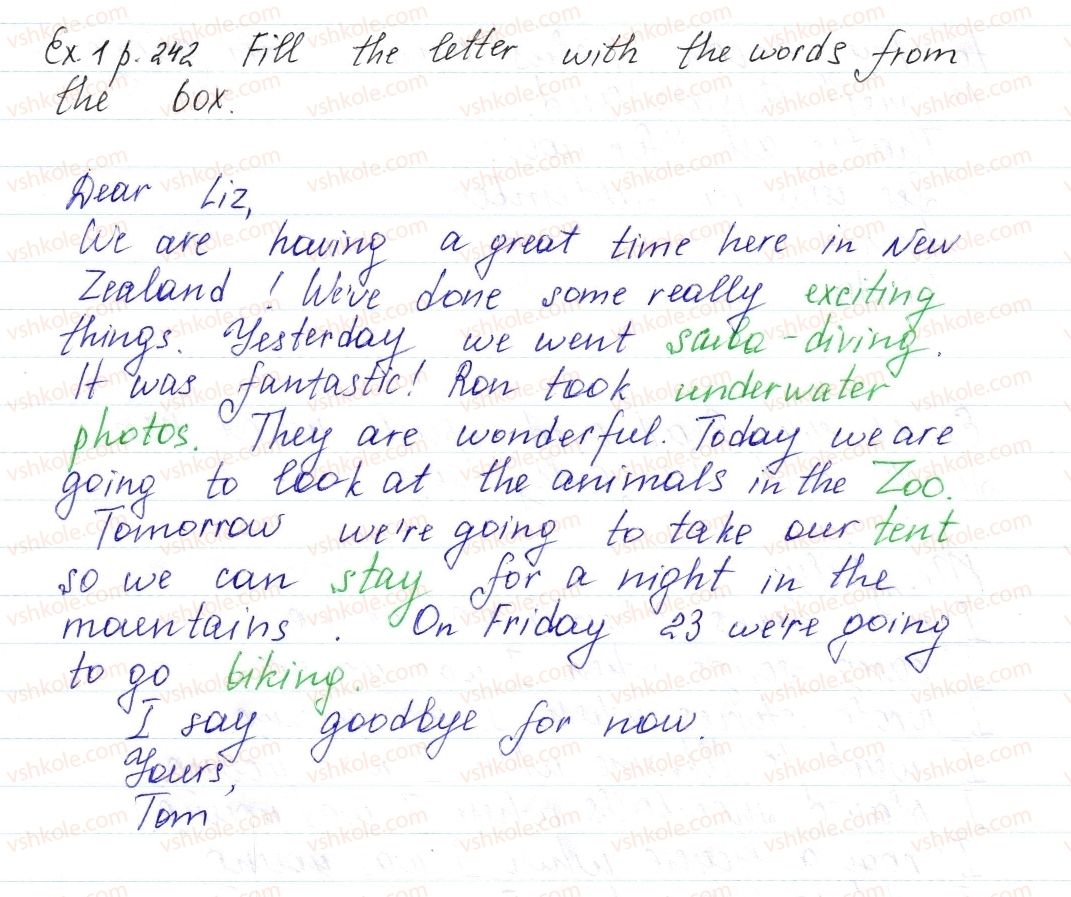 Ex. 1 p. 242 Fill the letter with the words from
the box.
Dear Liz,
We are having a great time here in New
Zealand ! We've done some really exciting
things. Yesterday we went scuba-diving.
It was fantastic! Ron took underwater
photos. They are wonderful. Today we are
going to look at the animals in the Zoo.
Tomorrow we're going to take our tent
so we can stay for a night in the
mountains . On Friday 23 we're going
to go biking.
I say goodbye for now.
Yours,
Tom